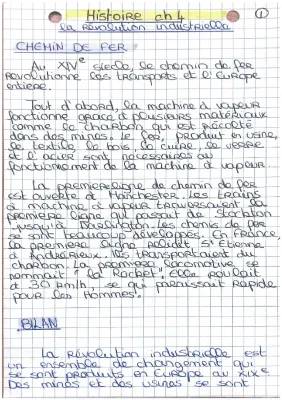 Histoire ch 4
①
la révolution industrielle
CHEMIN DE FER
Au XIVe siècle, le chemin de fer
révolutionne les transports et l'Europe
entière.
Tout d'abord, la machine à vapeur
fonctionne grâce à plusieurs matériaux
comme le charbon qui est récolté
dans des mines. Le fer, produit en usine,
le textile, le bois, le cuire, le verre
et l'acier sont nécessaires au
fonctionnement de la machine à vapeur.
La première ligne de chemin de fer
est ouverte à Manchester. Les trains
à machine à vapeur traversaient la
première ligne qui passait de Stockton
jusqu'à Darlington. Les chemis de fer
se sont beaucoup développés. En France,
la première ligne relidit St Etienne
à Andrézieux. Ils transportaient du
charbon. La première locomotive se
nommait "la Rocket". Elle roulait
à 30 km/h, se qui paraissait rapide
pour les Hommes.
BILAN
La révolution industrielle est
un ensemble de changement qui
se sont produits en Europe au XIXe
Des mines et des usines se sont